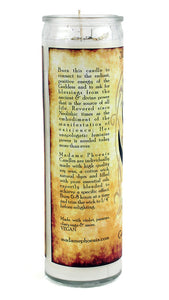 Burn this candle to
connect to the radiant,
positive energy of the
Goddess and to ask for
blessings from the
ancient & divine power
that is the source of all
life. Revered since
Neolithic times as the
embodiment of the
manifestation of
existence. Her
unapologetic feminine
power is needed today
more than ever.
Madame Phoenix
Candles are individually
made with high quality
soy wax, a cotton wick,
natural dyes and filled
with your most essential
oils that are
expertly blended to
achieve
Burn 6-8 hours at a
time, keep wick to 1/4"
before relighting.
Made with violet, patience,
clary sage & amber.
VEGAN
madamephoenix.com